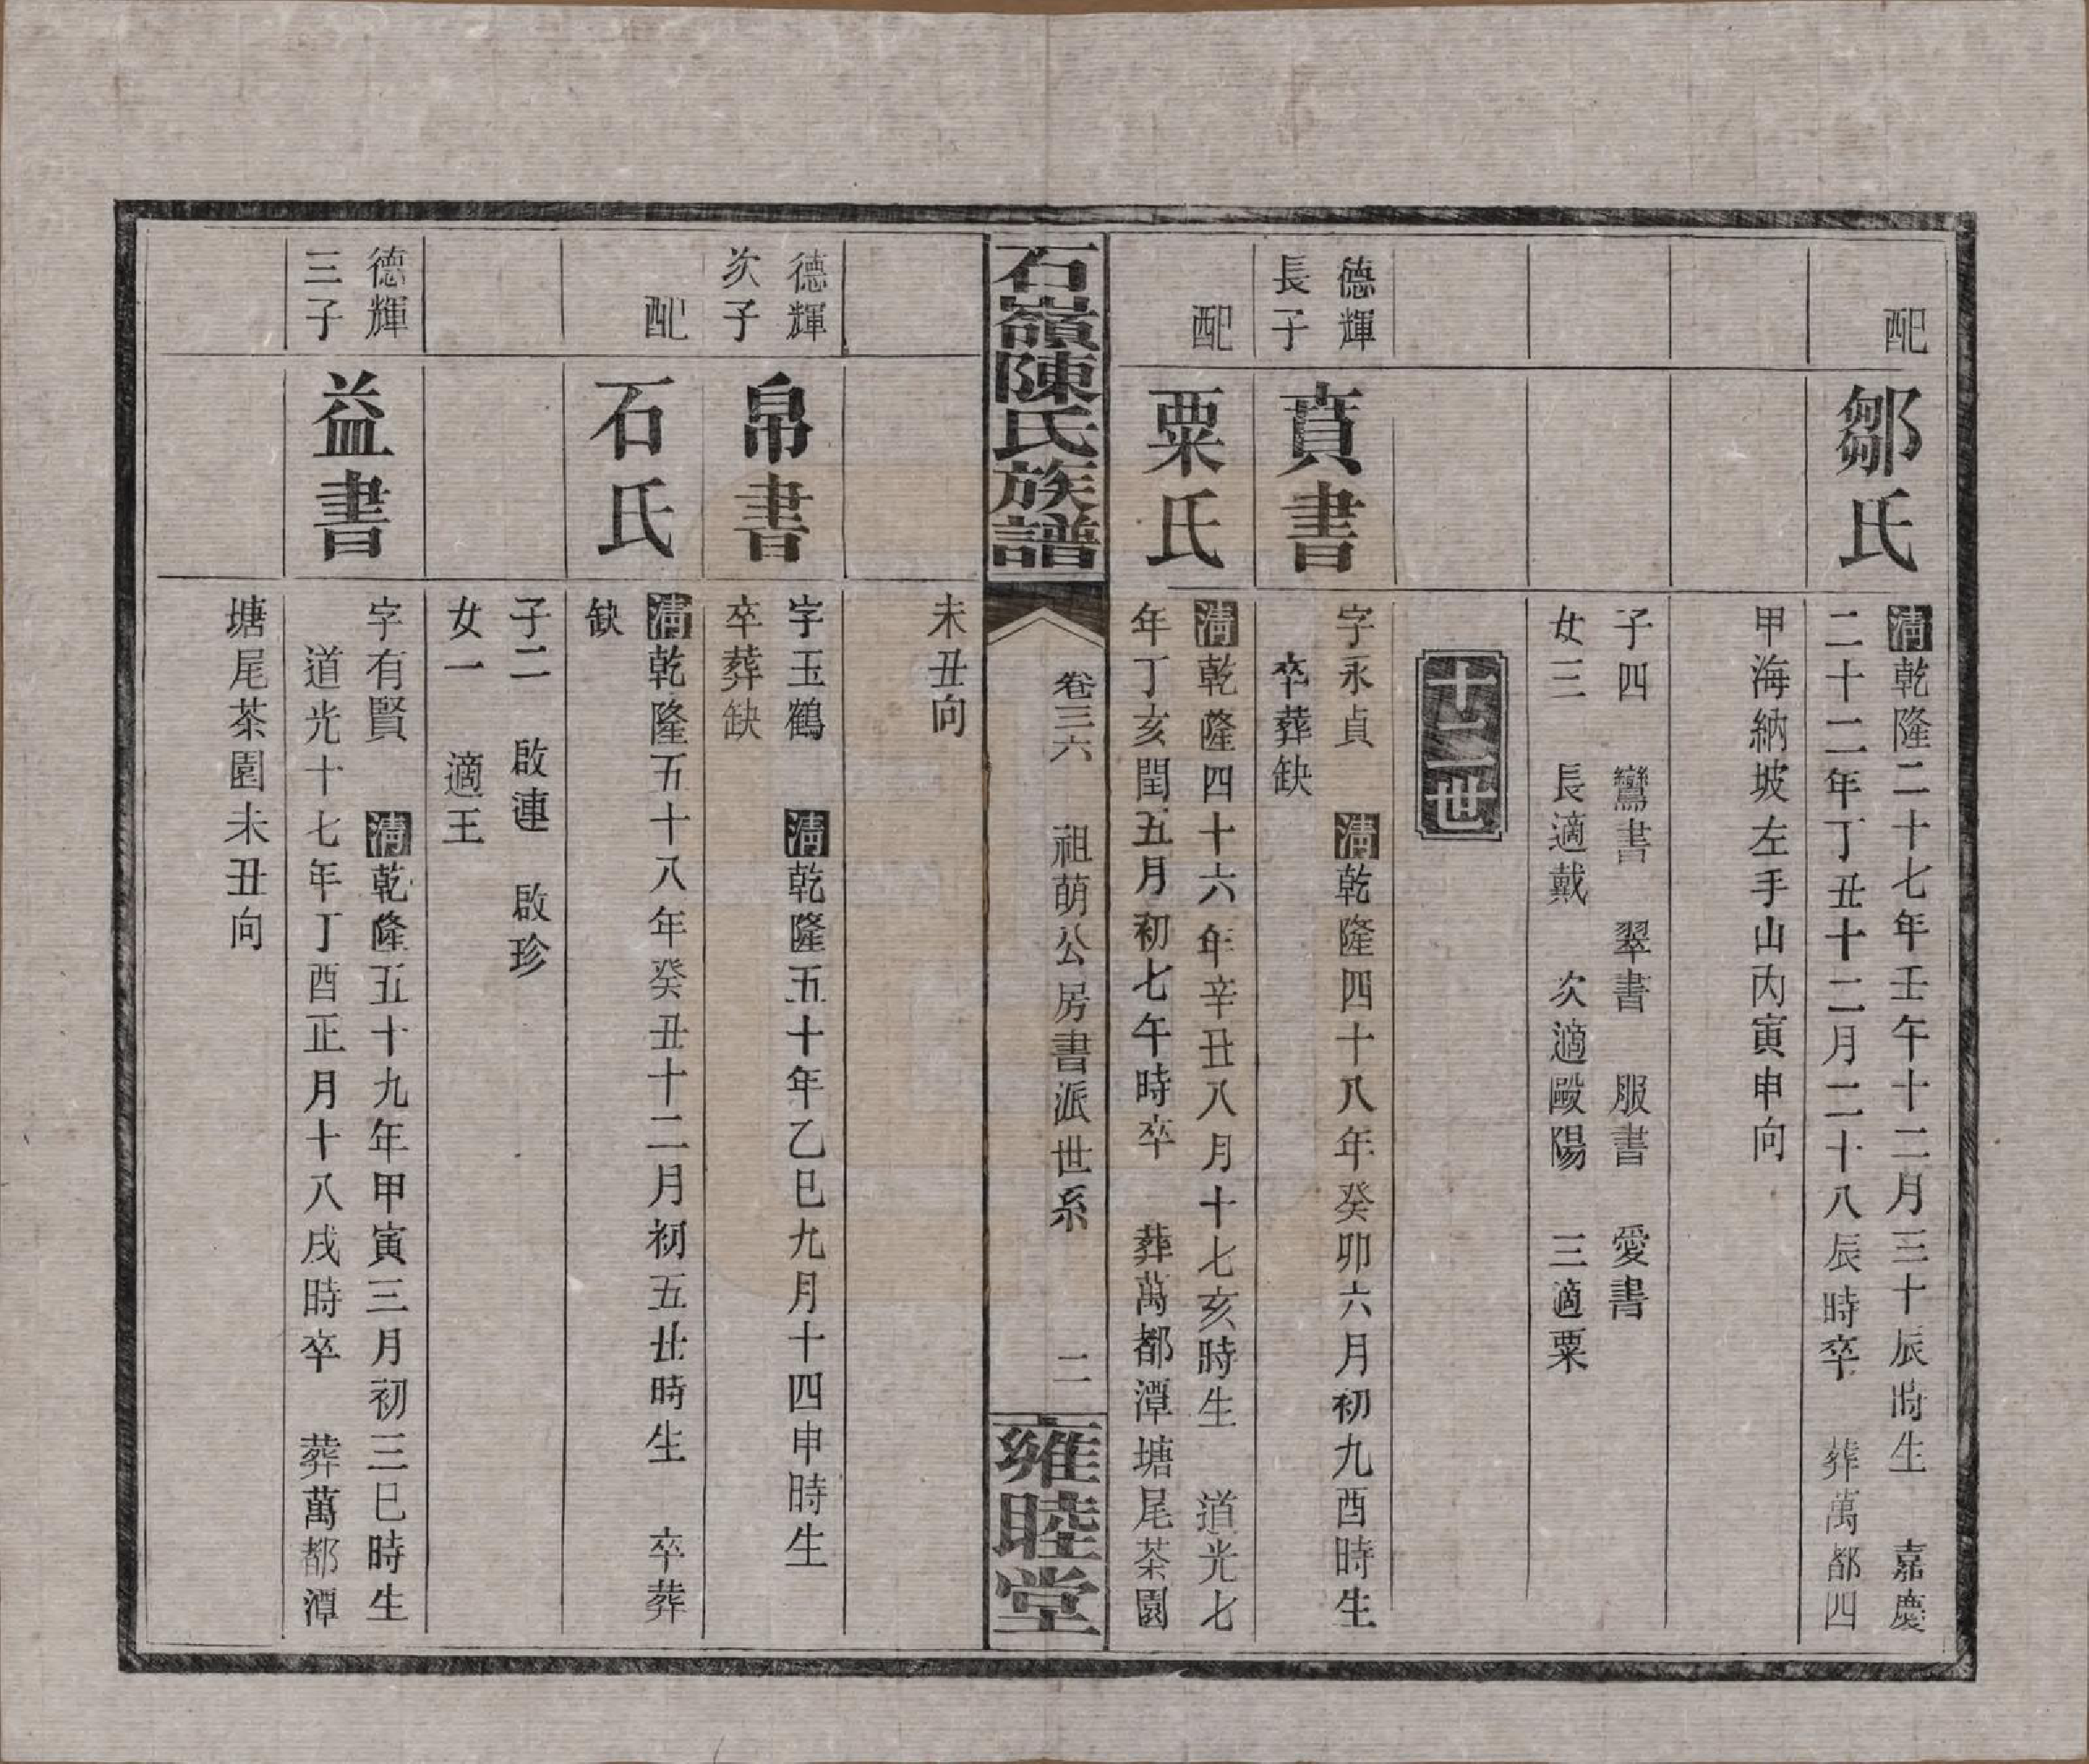 配
鄒氏
清乾隆二十七年壬午十二月三十辰時生 嘉慶
二十二年丁丑十二月二十八辰時卒 葬萬都四
甲海納坡左手山內寅申向
子四 鸞書 翠書 服書 愛書
女三 長適戴 次適歐陽 三適粟
十二世
德輝
長子
賁書
字永貞 清乾隆四十八年癸卯六月初九酉時生
卒葬缺
配
粟氏
清乾隆四十六年辛丑八月十七亥時生 道光七
年丁亥閏五月初七午時卒 葬萬都潭塘尾茶園
石嶺陳氏族譜
卷三六 祖萌公房書派世系 二
雍睦堂
未丑向
德輝
次子
帛書
字玉鶴 清乾隆五十年乙巳九月十四申時生
卒葬缺
配
石氏
清乾隆五十八年癸丑十二月初五丑時生 卒葬
缺
子二 啟連 啟珍
女一 適王
德輝
三子
益書
字有賢 清乾隆五十九年甲寅三月初三巳時生
道光十七年丁酉正月十八戌時卒 葬萬都潭
塘尾茶園未丑向